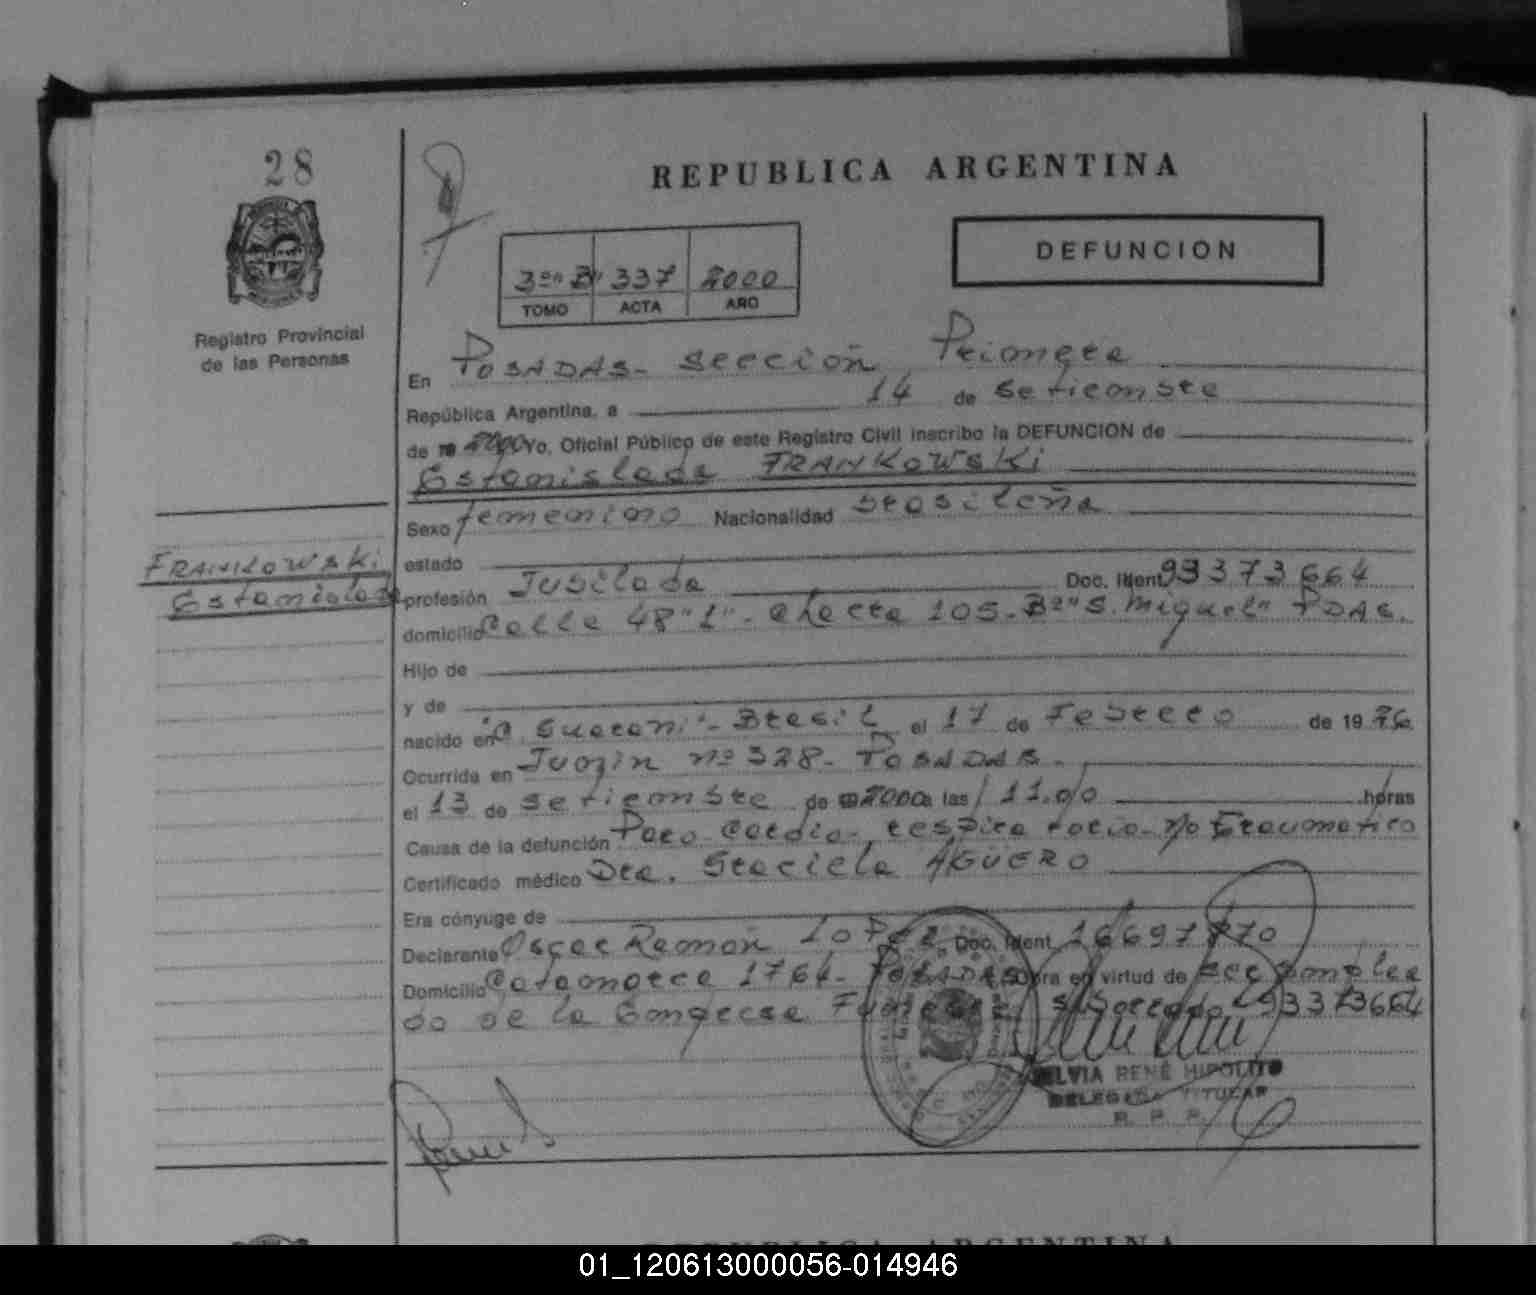 28
REPUBLICA ARGENTINA
DEFUNCION
3º "B" 337 2000
TOMO ACTA AÑO
Registro Provincial
de las Personas
En POSADAS- sección Primera
República Argentina, a 14 de setiembre
de 2000 Yo, Oficial Público de este Registro Civil inscribo la DEFUNCION de
Estanislada FRANKOWSKi
Sexo femenino Nacionalidad brasileña
FRANKOWSKi
Estanislada
estado
profesión Jubilada Doc. Ident. 93373664
domicilio Calle 48 "L"- chacra 105- Bº "S. Miguel" PDAS.
Hijo de
y de
nacido en Guarani - Brasil el 17 de Febrero de 19
Ocurrida en Junín nº 328- POSADAS-
el 13 de setiembre de 2000 a las 11.00 horas
Causa de la defunción Paro cardio-respiratorio-no traumatico
Certificado médico Dra. Graciela AGÜERO
Era cónyuge de
Declarante Oscar Ramón Doc. Ident. 16697770
Domicilio Catamarca 1764- POSADAS Obra en virtud de ser emplea
do de la Borrado 93373664
SILVIA RENÉ HIPOLITO
DELEGADA TITULAR
R. P. P.
REPUBLICA ARGENTINA
01_120613000056-014946